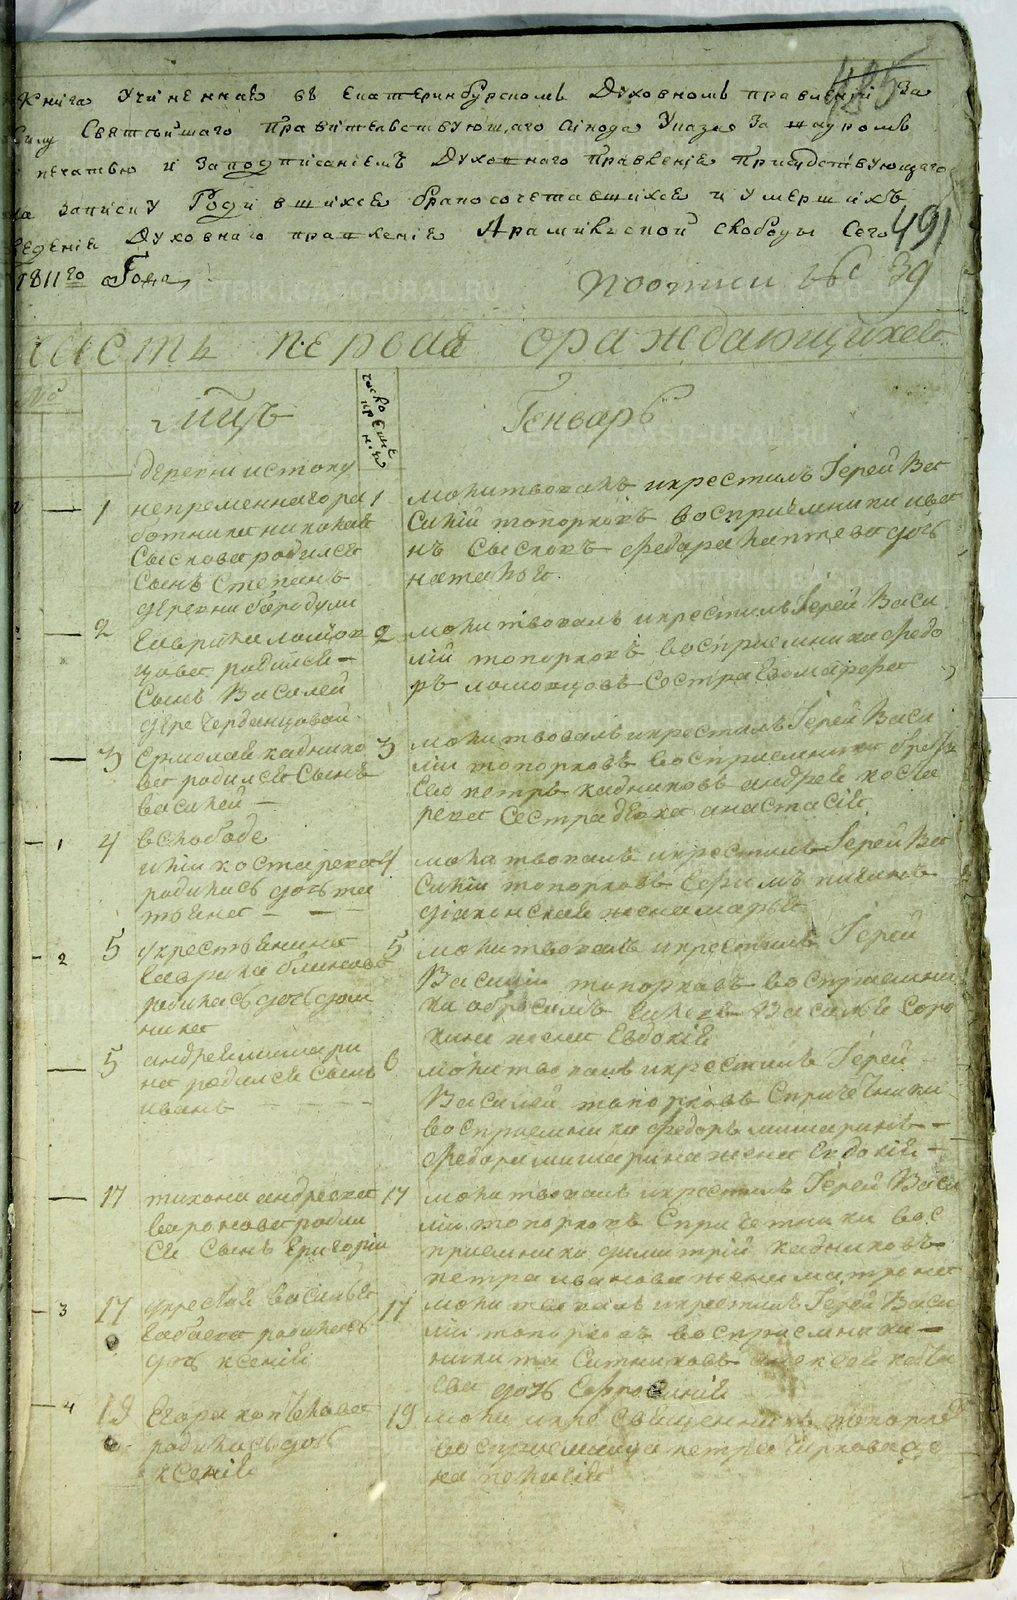 Книга Учиненная въ Екатеринбурскомъ Духовномъ правлении За
Силу Святейшаго Правительствующаго Синода Указа За шнуромъ
печатью и Заподписаниемъ Духовнаго Правления Присудствующаго
на записку Родившихся бракосочетавшихся и Умершихъ
ведения Духовнаго правления Арамильской слободы Сего
1811го Года
495
491
39
часть первая ораждающихся
лицъ
число крещения
Генварь
деревни истоку
1 непременнаго ра
ботника николая
Сыскова родился
Сынъ Степанъ
1 молитвовалъ икрестилъ Иерей Ва
силий топорковъ восприемники ива
нъ Сысковъ федора лаптева дочь
наталья
деревни бородули
2 Гаврила ломов
цова родился
Сынъ Василей
2 молитвовалъ икрестилъ Иерей Васи
лий топорковъ восприемника федо
ръ ломовцовъ Сестра Евомарфа
дере Черданцовай
3 Ермолая каднико
ва родился Сынъ
василей
3 молитвовалъ икрестилъ Иерей Васи
лии топорковъ восприемники
петръ кадниковъ андрея коста
рева Сестра девка анастасия
1 4 вслободе
илии костарева
родилась дочь та
тьяна
4 молитвовалъ икрестилъ Иерей Ва
силии топорковъ Ефимъ
диаконская жена марья
2 5 укрестьянина
Гаврила блинова
родилась дочь дом
ника
5 молитвовалъ икрестилъ Иерей
Василии топорковъ восприемни
ка Василья Соро
кина жена Евдокия
5 андрея мишари
на родился Сынъ
иванъ
6 молитвовалъ икрестилъ Иерей
Василей топорковъ Спричетники
восприемника федоръ мишаринъ
федора мишарина жена Евдокия
17 тихона андреева
воронова роди
ся Сынъ Григорий
17 молитвовалъ икрестилъ Иерей Васи
лии топорковъ Спричетники вос
приемники димитрий кадниковъ
петра иванова жена матрена
3 17 василья
бабаева родилась
дочь ксения
17 молитвовалъ икрестилъ Иерей Васи
лии топорковъ восприемники
никита Ситниковъ
дочь Ефросиния
4 19 Егора копылова
родилась дочь
ксения
19 моли икре Священникъ топорко
восприемница петра
на пелагия